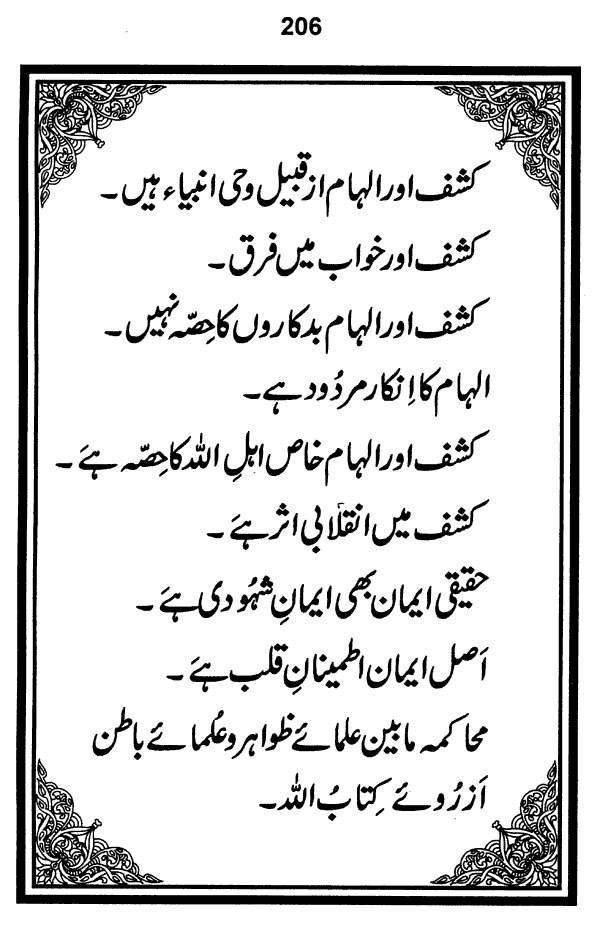 206
کشف اور الہام از قبیل وحی انبیاء ہیں۔
کشف اور خواب میں فرق۔
کشف اور الہام بدکاروں کا حِصّہ نہیں۔
الہام کا اِنکار مردُود ہے۔
کشف اور الہام خاص اہلِ اللہ کا حِصّہ ہَے۔
کشف میں انقلابی اثر ہَے۔
حقیقی ایمان بھی ایمانِ شہُودی ہَے۔
اَصل ایمان اطمینانِ قلب ہَے۔
محاکمہ مابین علمائے ظواہر و عُلمائے باطن
اَز رُوئے کِتابُ اللہ۔